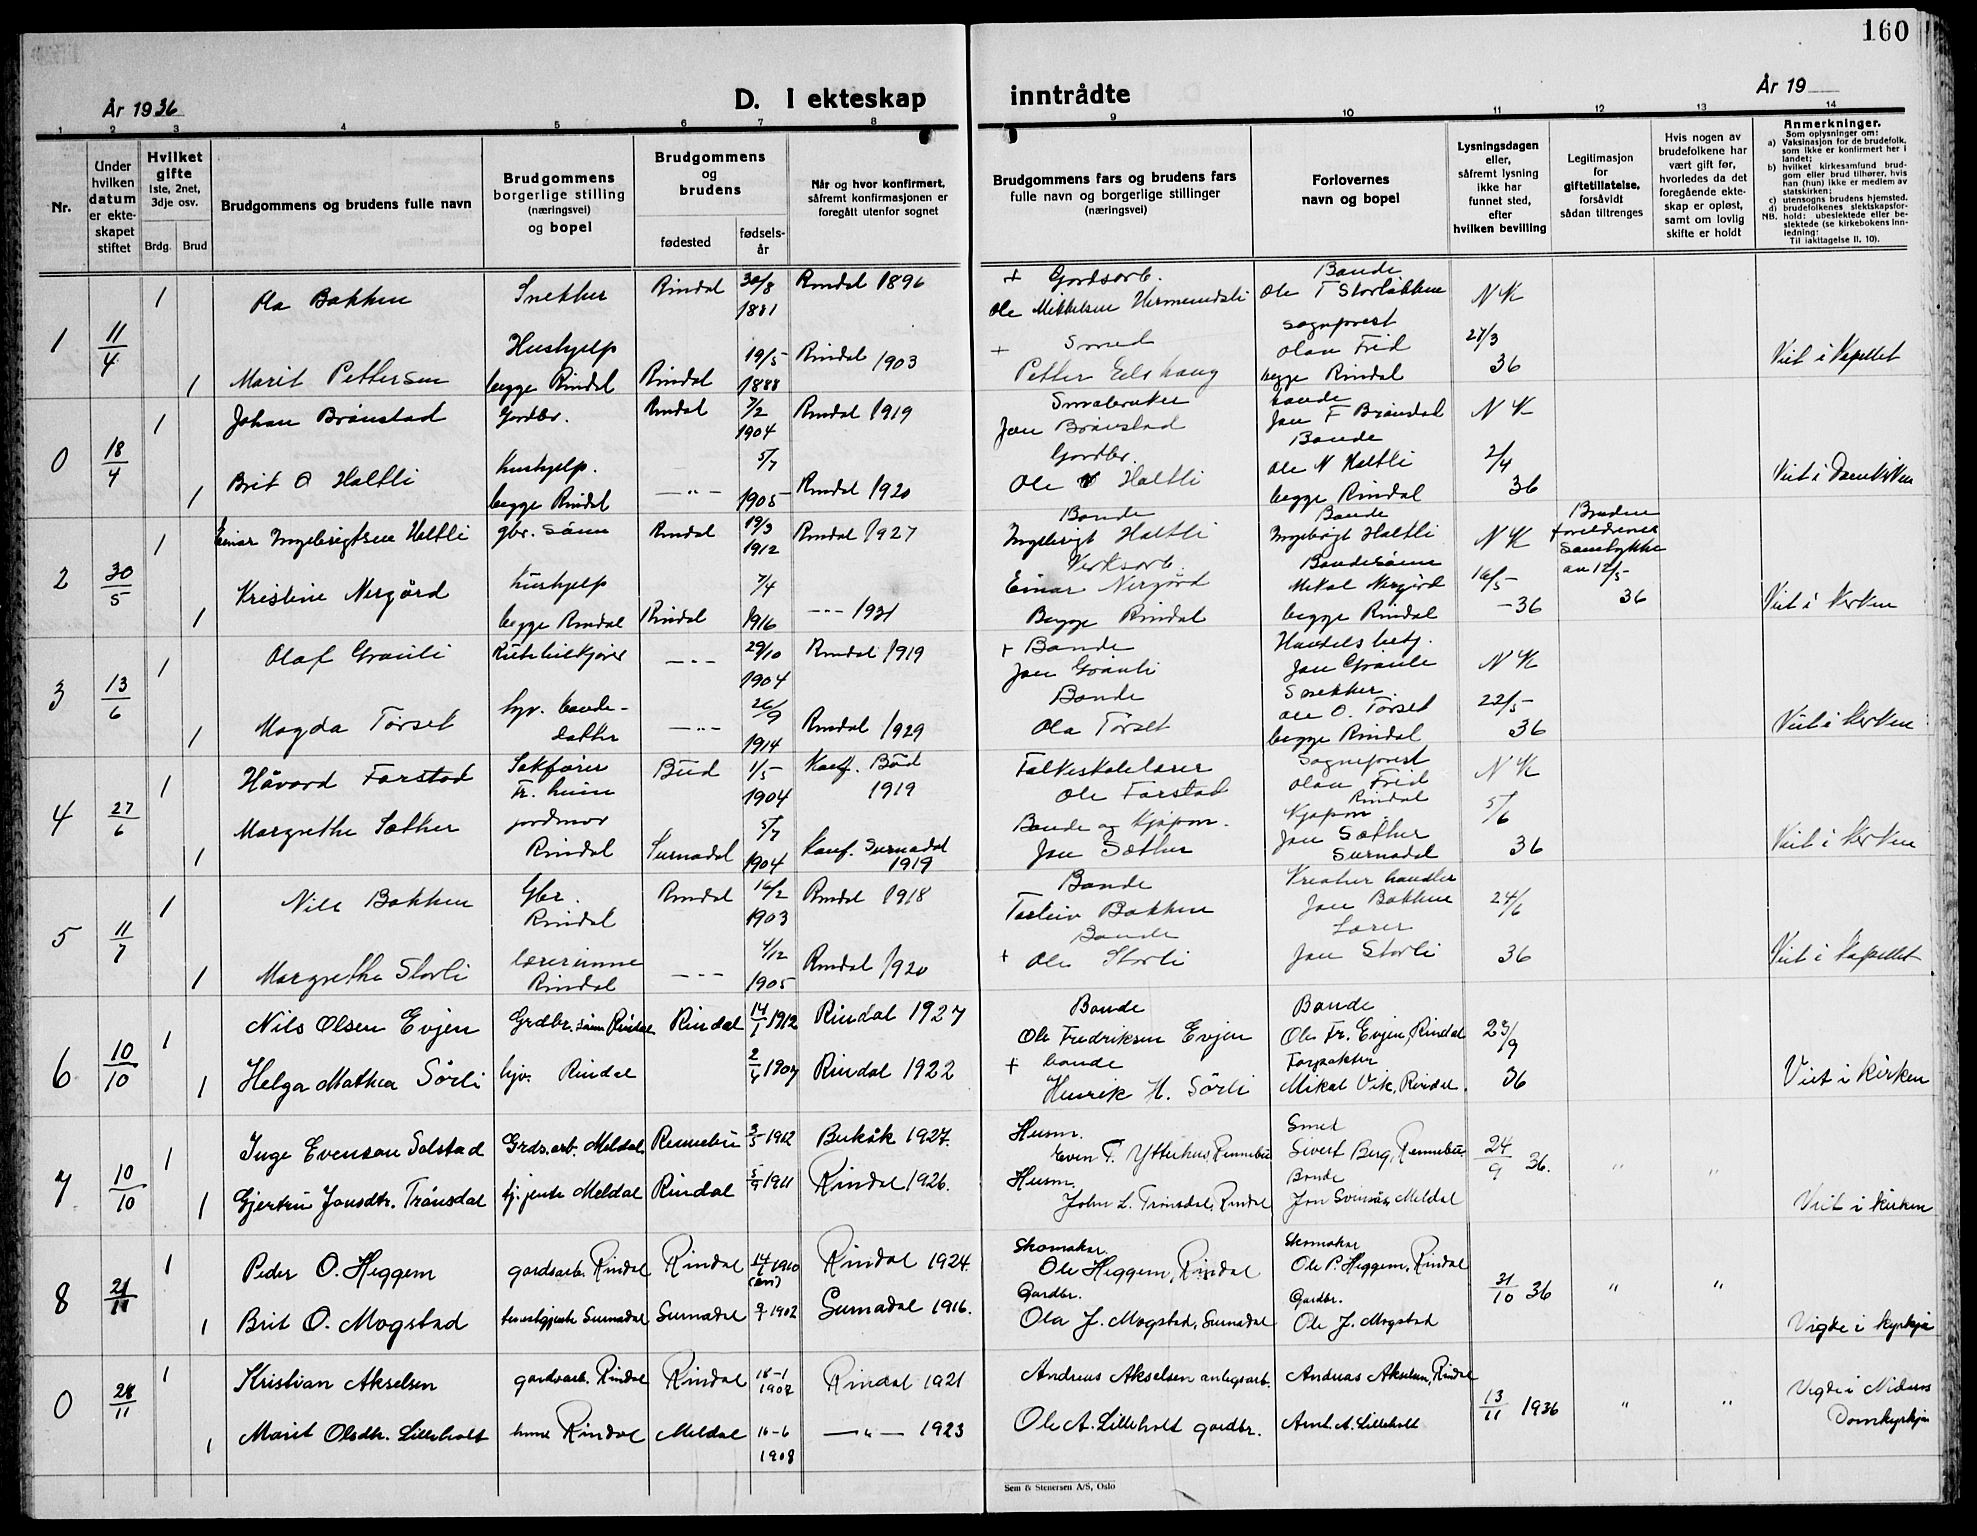 160
År 1936
D. I ekteskap
inntrådte
År 19
1 2 3 4 5 6 7 8 9 10 11 12 13 14
Nr.
Under hvilken datum er ekteskapet stiftet
Hvilket gifte
1ste, 2net, 3dje osv.
Brdg. Brud
Brudgommens og brudens fulle navn
Brudgommens borgerlige stilling (næringsvei) og bopel
Brudgommens og brudens
fødested
fødselsår
Når og hvor konfirmert, såfremt konfirmasjonen er foregått utenfor sognet
Brudgommens fars og brudens fars fulle navn og borgerlige stillinger (næringsvei)
Forlovernes navn og bopel
Lysningsdagen eller, såfremt lysning ikke har funnet sted, efter hvilken bevilling
Legitimasjon for giftetillatelse, forsåvidt sådan tiltrenges
Hvis nogen av brudefolkene har vært gift før, hvorledes da det foregående ekteskap er opløst, samt om lovlig skifte er holdt
Anmerkninger.
Som oplysninger om:
a) Vaksinasjon for de brudefolk, som ikke er konfirmert her i landet;
b) hvilket kirkesamfund brudgom eller brud tilhører, hvis han (hun) ikke er medlem av statskirken;
c) utensogns brudens hjemsted.
d) brudefolkenes slektskapsforhold: ubeslektede eller beslektede (se kirkebokens Innledning: Til iakttagelse II. 10).
NB.
1 11/4 1 Ola Bakken Snekker Rindal 30/8 1881 Rindal 1896 + Gardsarb. Ole Mikkelsen Bonde Ole T Storløkken N K
1 Marit Pettersen Hushjelp begge Rindal Rindal 19/5 1888 Rindal 1903 + Smed Petter Sogneprest Olav Frid begge Rindal 27/3 36 Viet i Kapellet
0 18/4 1 Johan Brønstad Gardbr. Rindal 7/2 1904 Rindal 1919 Småbruker Jon Brønstad Bonde Jon F Brøndal N K
1 Brit O Haltli hushjelp. begge Rindal —"— 5/7 1905 Rindal 1920 Gardbr. Ole Haltli Bonde Ole N Haltli begge Rindal 2/4 36 Viet i Domkirken
2 30/5 1 Einar Ingebrigtsen Haltli gbr. sønn Rindal 19/3 1912 Rindal 1927 Bonde Ingebrigt Haltli Bonde Ingebrigt Haltli N K Brudens foreldrenes samtykke av 12/5 36
1 Kristine Nergård hushjelp begge Rindal Rindal 7/4 1916 —"— 1931 Verksarb. Einar Nergård Begge Rindal Bondesønn Mikal Nergård begge Rindal 16/5 -36 Viet i kirken
3 13/6 1 Olaf Grønli Rutebilkjører —"— 29/10 1904 Rindal 1919 + Bonde Jon Grønli Handelsbetj. Jon Grønli N K
1 Magda Tørset hjv. bondedatter —"— 26/9 1914 Rindal 1929 Bonde Ola Tørset Snekker Ole O. Tørset begge Rindal 22/5 36 Viet i kirken
4 27/6 1 Håvard Farstad Sakfører Tr.heim Bud 1/5 1904 Konf. Bud 1919 Folkeskolelærer Ole Farstad Sogneprest Olav Frid Rindal N K
1 Margrethe Sæther jordmor Rindal Surnadal 5/7 1904 Konf. Surnadal 1919 Bonde og kjøpm. Jon Sæther Kjøpm. Jon Sæther Surnadal 5/6 36 Viet i kirken
5 11/7 1 Nils Bakken Gbr. Rindal Rindal 16/2 1903 Rindal 1918 Bonde Torleiv Bakken Kreaturhandler Jon Bakken 24/6
1 Margrethe Storli lærerinne Rindal —"— 4/12 1905 Rindal 1920 + Bonde Ole Storli Lærer Jon Storli 36 Viet i kapellet
6 10/10 1 Nils Olsen Evjen Grdbr. sønn Rindal Rindal 14/1 1912 Rindal 1927 Bonde Ole Fredriksen Evjen Bonde Ole Fr. Evjen, Rindal 23/9
1 Helga Mathea Sørli hjv. Rindal 1907 Rindal 1922 + bonde Henrik H. Sørli Forpakter Mikal Vik, Rindal. 36 Viet i kirken
7 10/10 1 Inge Evensen Solstad Grds.arb. Meldal Rennebu 3/5 1912 Buksk 1927. Husm. Even T. Ytterhus, Rennebu Smed Sivert Berg, Rennebu 24/9 36. " "
1 Gjertru Jonsdtr. Trønsdal tj.jente Meldal Rindal 1911 Rindal 1926. Husm. John L. Trønsdal, Rindal Bonde Jon Svinsås, Meldal Viet i kirken
8 21/11 1 Peder O. Heggem gardsarb. Rindal Rindal 1910 Rindal 1924. Skomakar Ole Heggem, Rindal Skomakar Ole P. Heggem, Rindal 31/10 36 " "
1 Brit O. Mogstad tenestgjente Surnadal Surnadal 1902 Surnadal 1916. Gardbr. Ola J. Mogstad, Surnadal Gardbr. Ole J. Mogstad Vigde i kyrkja
0 28/11 1 Kristian Akselsen gardsarb. Rindal Rindal 18-1 1907 Rindal 1921 Andreas Akselsen anlegsarb. Andreas Akselsen, Rindal 13/11 1936 " "
1 Marit Olsdtr. Lilleholt heime Rindal Meldal 16-6 1908 —"— 1923 Ole A. Lilleholt gardbr. Arnt A. Lilleholt Vigde i Nidaros Domkyrkja
Sem & Stenersen A/S, Oslo